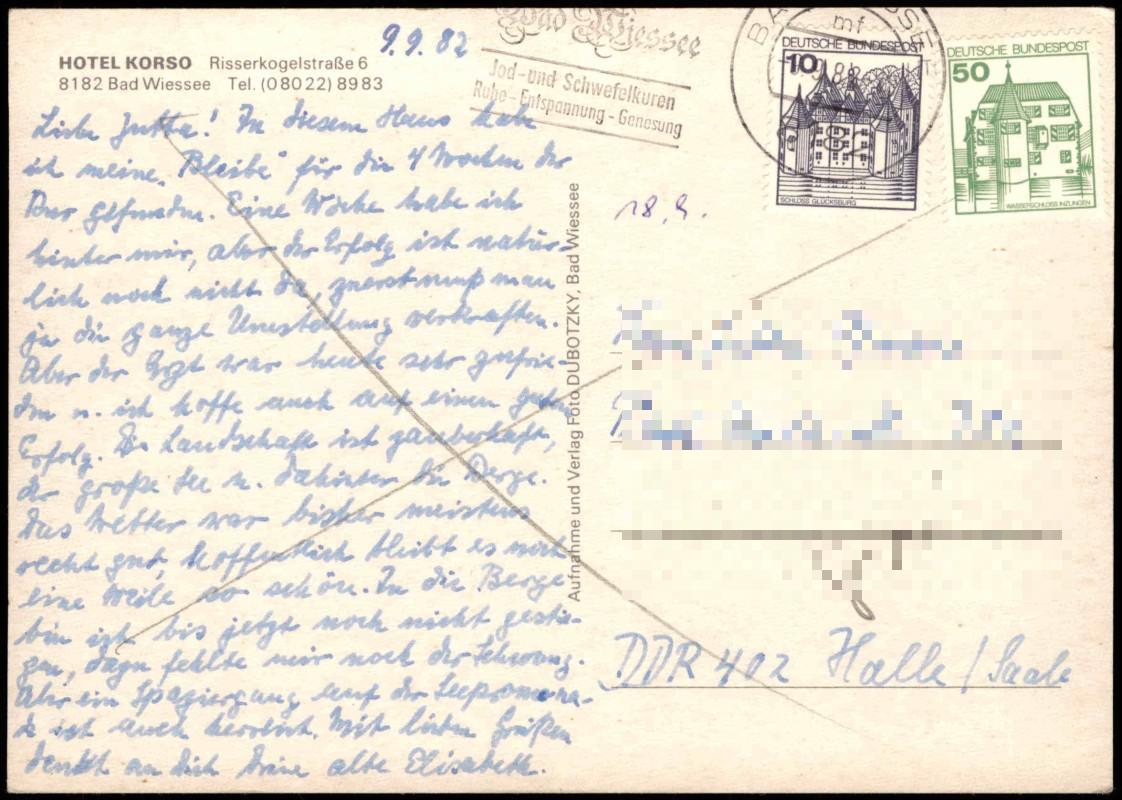 9.9.82
HOTEL KORSO Risserkogelstraße 6
8182 Bad Wiessee Tel. (08022) 8983
Liebe Jutta! In diesem Haus habe
ich meine „Bleibe" für die 4 Wochen der
Kur gefunden. Eine Woche habe ich
hinter mir, aber der Erfolg ist natür-
lich noch nicht da, zuerst muß man
ja die ganze Umstellung verkraften.
Aber der Arzt war heute sehr zufrie-
den u. ich hoffe auch auf einen guten
Erfolg. Die Landschaft ist zauberhaft,
der große See u. dahinter die Berge.
Das Wetter war bisher meistens
recht gut, hoffentlich bleibt es noch
eine Weile so schön. In die Berge
bin ich bis jetzt noch nicht gestie-
gen, dazu fehlte mir noch der Schwung.
Aber ein Spaziergang auf der Seepromena-
de ist auch herrlich. Mit lieben Grüßen
denkt an Dich Deine alte Elisabeth.
Aufnahme und Verlag Foto DUBOTZKY, Bad Wiessee
Bad Wiessee
Jod- und Schwefelkuren
Ruhe - Entspannung - Genesung
mf
DEUTSCHE BUNDESPOST
10
SCHLOSS GLÜCKSBURG
DEUTSCHE BUNDESPOST
50
WASSERSCHLOSS INZLINGEN
18.9.
DDR 402 Halle / Saale